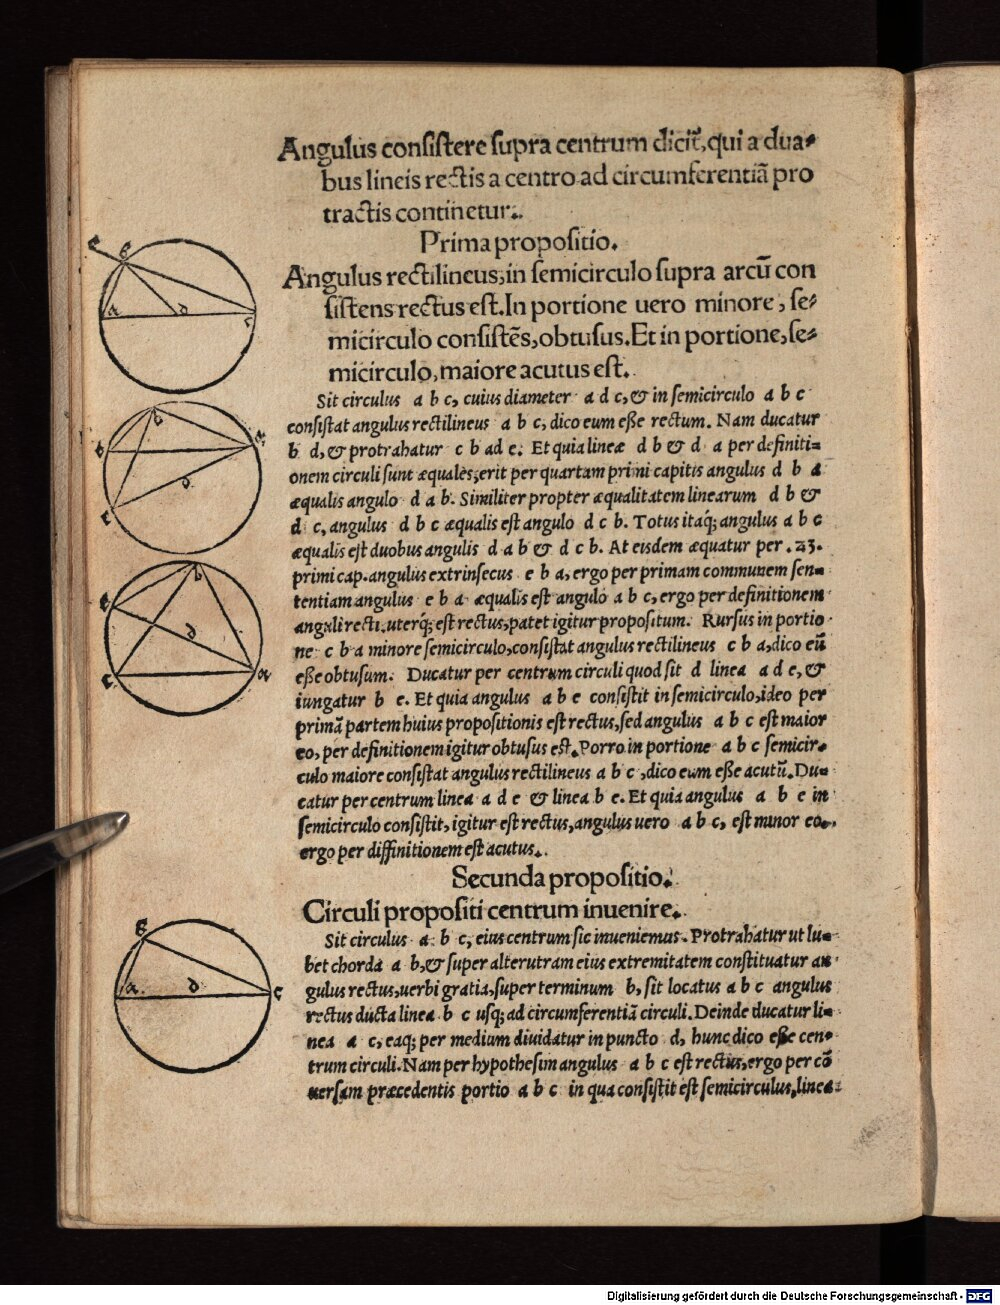 Angulus consistere supra centrum dicit᷑, qui a dua⸗
bus lineis rectis a centro ad circumferentiã pro
tractis continetur.
Prima propositio.
Angulus rectilineus, in semicirculo supra arcũ con
sistens rectus est. In portione uero minore, se⸗
micirculo consistẽs, obtusus. Et in portione, se⸗
micirculo, maiore acutus est.
Sit circulus a b c, cuius diameter a d c, & in semicirculo a b c
consistat angulus rectilineus a b c, dico eum eße rectum. Nam ducatur
b d, & protrahatur c b ad e. Et quia lineæ d b & d a per definiti⸗
onem circuli sunt æquales, erit per quartam primi capitis angulus d b a
æqualis angulo d a b. Similiter propter æqualitatem linearum d b &
d c, angulus d b c æqualis est angulo d c b. Totus itaq; angulus a b c
æqualis est duobus angulis d a b & d c b. At eisdem æquatur per .23.
primi cap. angulus extrinsecus e b a, ergo per primam communem sen⸗
tentiam angulus e b a æqualis est angulo a b c, ergo per definitionem
anguli recti, uterq; est rectus, patet igitur propositum. Rursus in portio
ne c b a minore semicirculo, consistat angulus rectilineus c b a, dico eũ
eße obtusum. Ducatur per centrum circuli quod sit d linea a d e, &
iungatur b e. Et quia angulus a b e consistit in semicirculo, ideo per
primã partem huius propositionis est rectus, sed angulus a b c est maior
eo, per definitionem igitur obtusus est. Porro in portione a b c semicir⸗
culo maiore consistat angulus rectilineus a b c, dico eum eße acutũ. Du⸗
catur per centrum linea a d e & linea b e. Et quia angulus a b e in
semicirculo consistit, igitur est rectus, angulus uero a b c, est minor eo,
ergo per diffinitionem est acutus.
Secunda propositio.
Circuli propositi centrum inuenire.
Sit circulus a b c, eius centrum sic inueniemus. Protrahatur ut lu⸗
bet chorda a b, & super alterutram eius extremitatem constituatur an⸗
gulus rectus, uerbi gratia, super terminum b, sit locatus a b c angulus
rectus ducta linea b c usq; ad circumferentiã circuli. Deinde ducatur li⸗
nea a c, eaq; per medium diuidatur in puncto d, hunc dico eße cen⸗
trum circuli. Nam per hypothesim angulus a b c est rectus, ergo per cõ
uersam præcedentis portio a b c in qua consistit est semicirculus, linea
e b
a d c
b
d a
d
c
b
e
d
c a
b
a d c
Digitalisierung gefördert durch die Deutsche Forschungsgemeinschaft - DFG